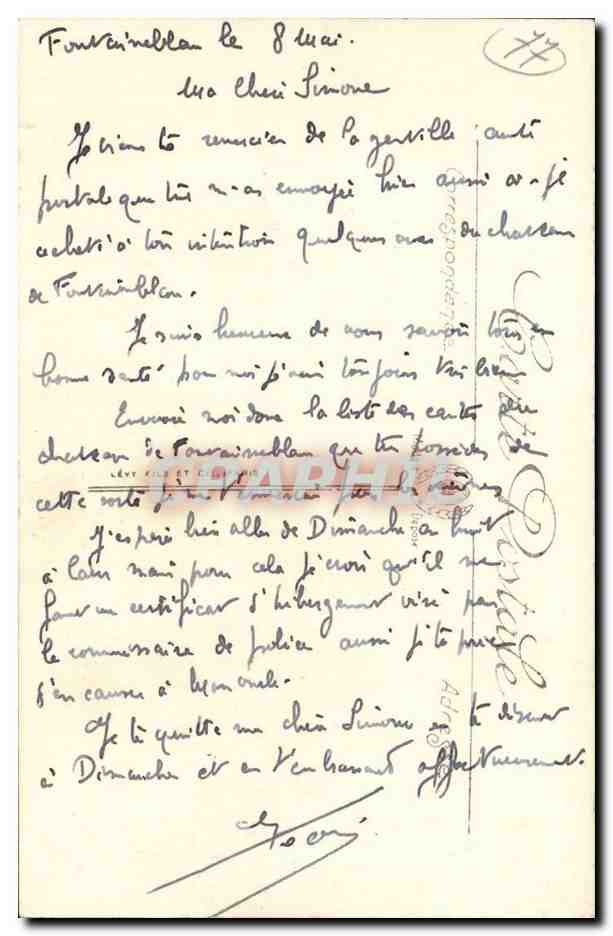 Fontainebleau le 8 Mai.
77
Ma Cheri Simone
Je viens te remercier de la gentille carte
postale que tu m'as envoyée hier aussi ai-je
acheté à ton intention quelques vues du chateau
de Fontainebleau.
Je suis heureux de vous savoir tous en
bonne santé pour moi j'vais toujours très bien
Envoie moi donc la liste des cartes du
chateau de Fontainebleau que tu possèdes de
cette sorte je ne t'enverrai pas les mêmes
J'espère bien aller de Dimanche en huit
à mais pour cela je crois qu'il me
faut un certificat d'hébergement visé par
le commissaire de police aussi je te prie
d'en causer à
Je te quitte ma chère Simone en te disant
à Dimanche et en t'embrassant affectueusement.
Carte Postale
Correspondance
Adresse
LÉVY FILS ET
CPAPHIL